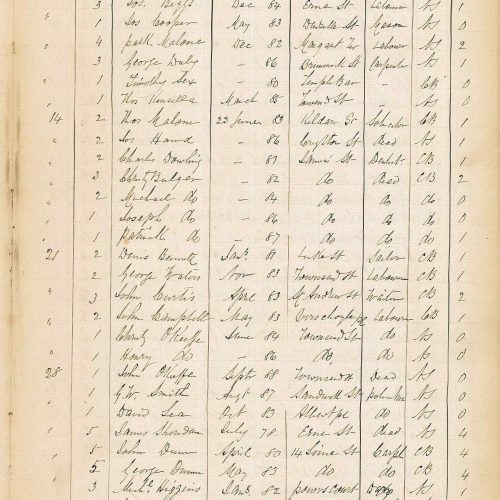 3 Jos. Biggs Dec 84 Erne St Labourer Ns 1
" 1 Jos Cooper May 83 Denzille St Mason Ns 0
" 4 Patk. Malone Dec 82 Margart Tce Labourer Ns 2
3 George Daly - 86 Brunswick St Carpenter Ns 1
1 Timothy Fox - 80 Temple Bar - CB 0
1 Thos Kinsella March 85 Townsend St - Ns 0
14 2 Thos Malone 23 June 83 Kildare St Solicitor CB 1
" 2 Jos Hand - 86 Crofton St dead Ns 1
" 2 Charles Dowling - 81 St Dentist CB 1
3 Christy Bulger - 82 do dead CB 2
" 2 Michael do - 84 do do do 0
" 1 Joseph do - 86 do do do 0
1 Patrick do - 87 do do do 1
21 2 Denis Bennett Jany. 81 Luke St Sailor CB 1
" 2 George Waters Nov 83 Townsend St Labourer CB 1
" 3 John Curtis April 83 St Andrew St Waiter CB 2
2 John Campbell May 83 Verschoyle pl Labourer CB 1
" 1 Christy O'Keeffe June 84 Townsend St do Ns 0
" 1 Henry do - 86 do do Ns 0
28 1 John O'Keeffe Sept 88 Townsend Dead Ns 0
" 1 G.W. Smith Augt 87 Sandwith St Ns 0
" 1 David Lea Oct 83 Albert pl do Ns 0
" 5 James Sheridan July 78 Erne St dead Ns 4
" 5 John Dunn April 80 14 Lime St Carpt CB 4
" 5 George Dunne May 83 do do CB 4
" 3 Higgins Jany. 82 powers court Ns 1